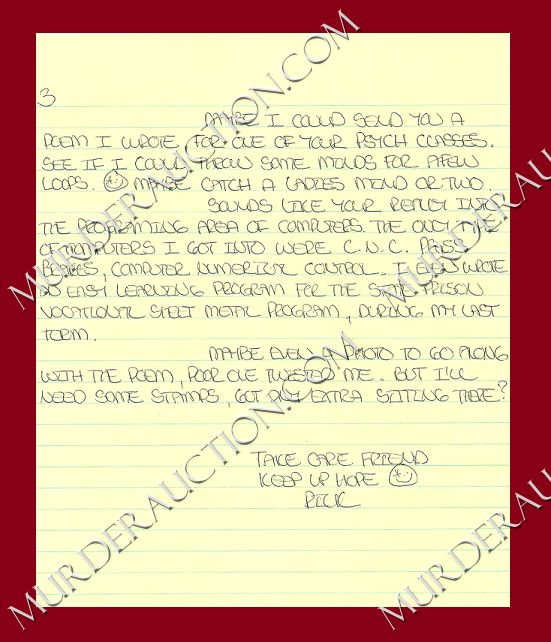 3
MAYBE I COULD SEND YOU A
POEM I WROTE FOR ONE OF YOUR PSYCH CLASSES.
SEE IF I COULD THROW SOME MINDS FOR A FEW
LOOPS. MAYBE CATCH A LADIES MIND OR TWO.
SOUNDS LIKE YOUR REALLY INTO
THE PROGRAMING AREA OF COMPUTERS. THE ONLY TYPE
OF COMPUTERS I GOT INTO WERE C.N.C. PRESS
BRAKES, COMPUTER NUMERICAL CONTROL. I EVEN WROTE
AN EASY LEARNING PROGRAM FOR THE STATE PRISON
VOCATIONAL SHEET METAL PROGRAM, DURING MY LAST
TERM.
MAYBE EVEN A PHOTO TO GO ALONG
WITH THE POEM, POOR OLE TWISTED ME. BUT I'LL
NEED SOME STAMPS, GOT ANY EXTRA SITTING THERE?
TAKE CARE FRIEND
KEEP UP HOPE
RICK
MURDERAUCTION.COM
MURDERAUCTION.COM
MURDERAUCTION.COM
MURDERAUCTION.COM